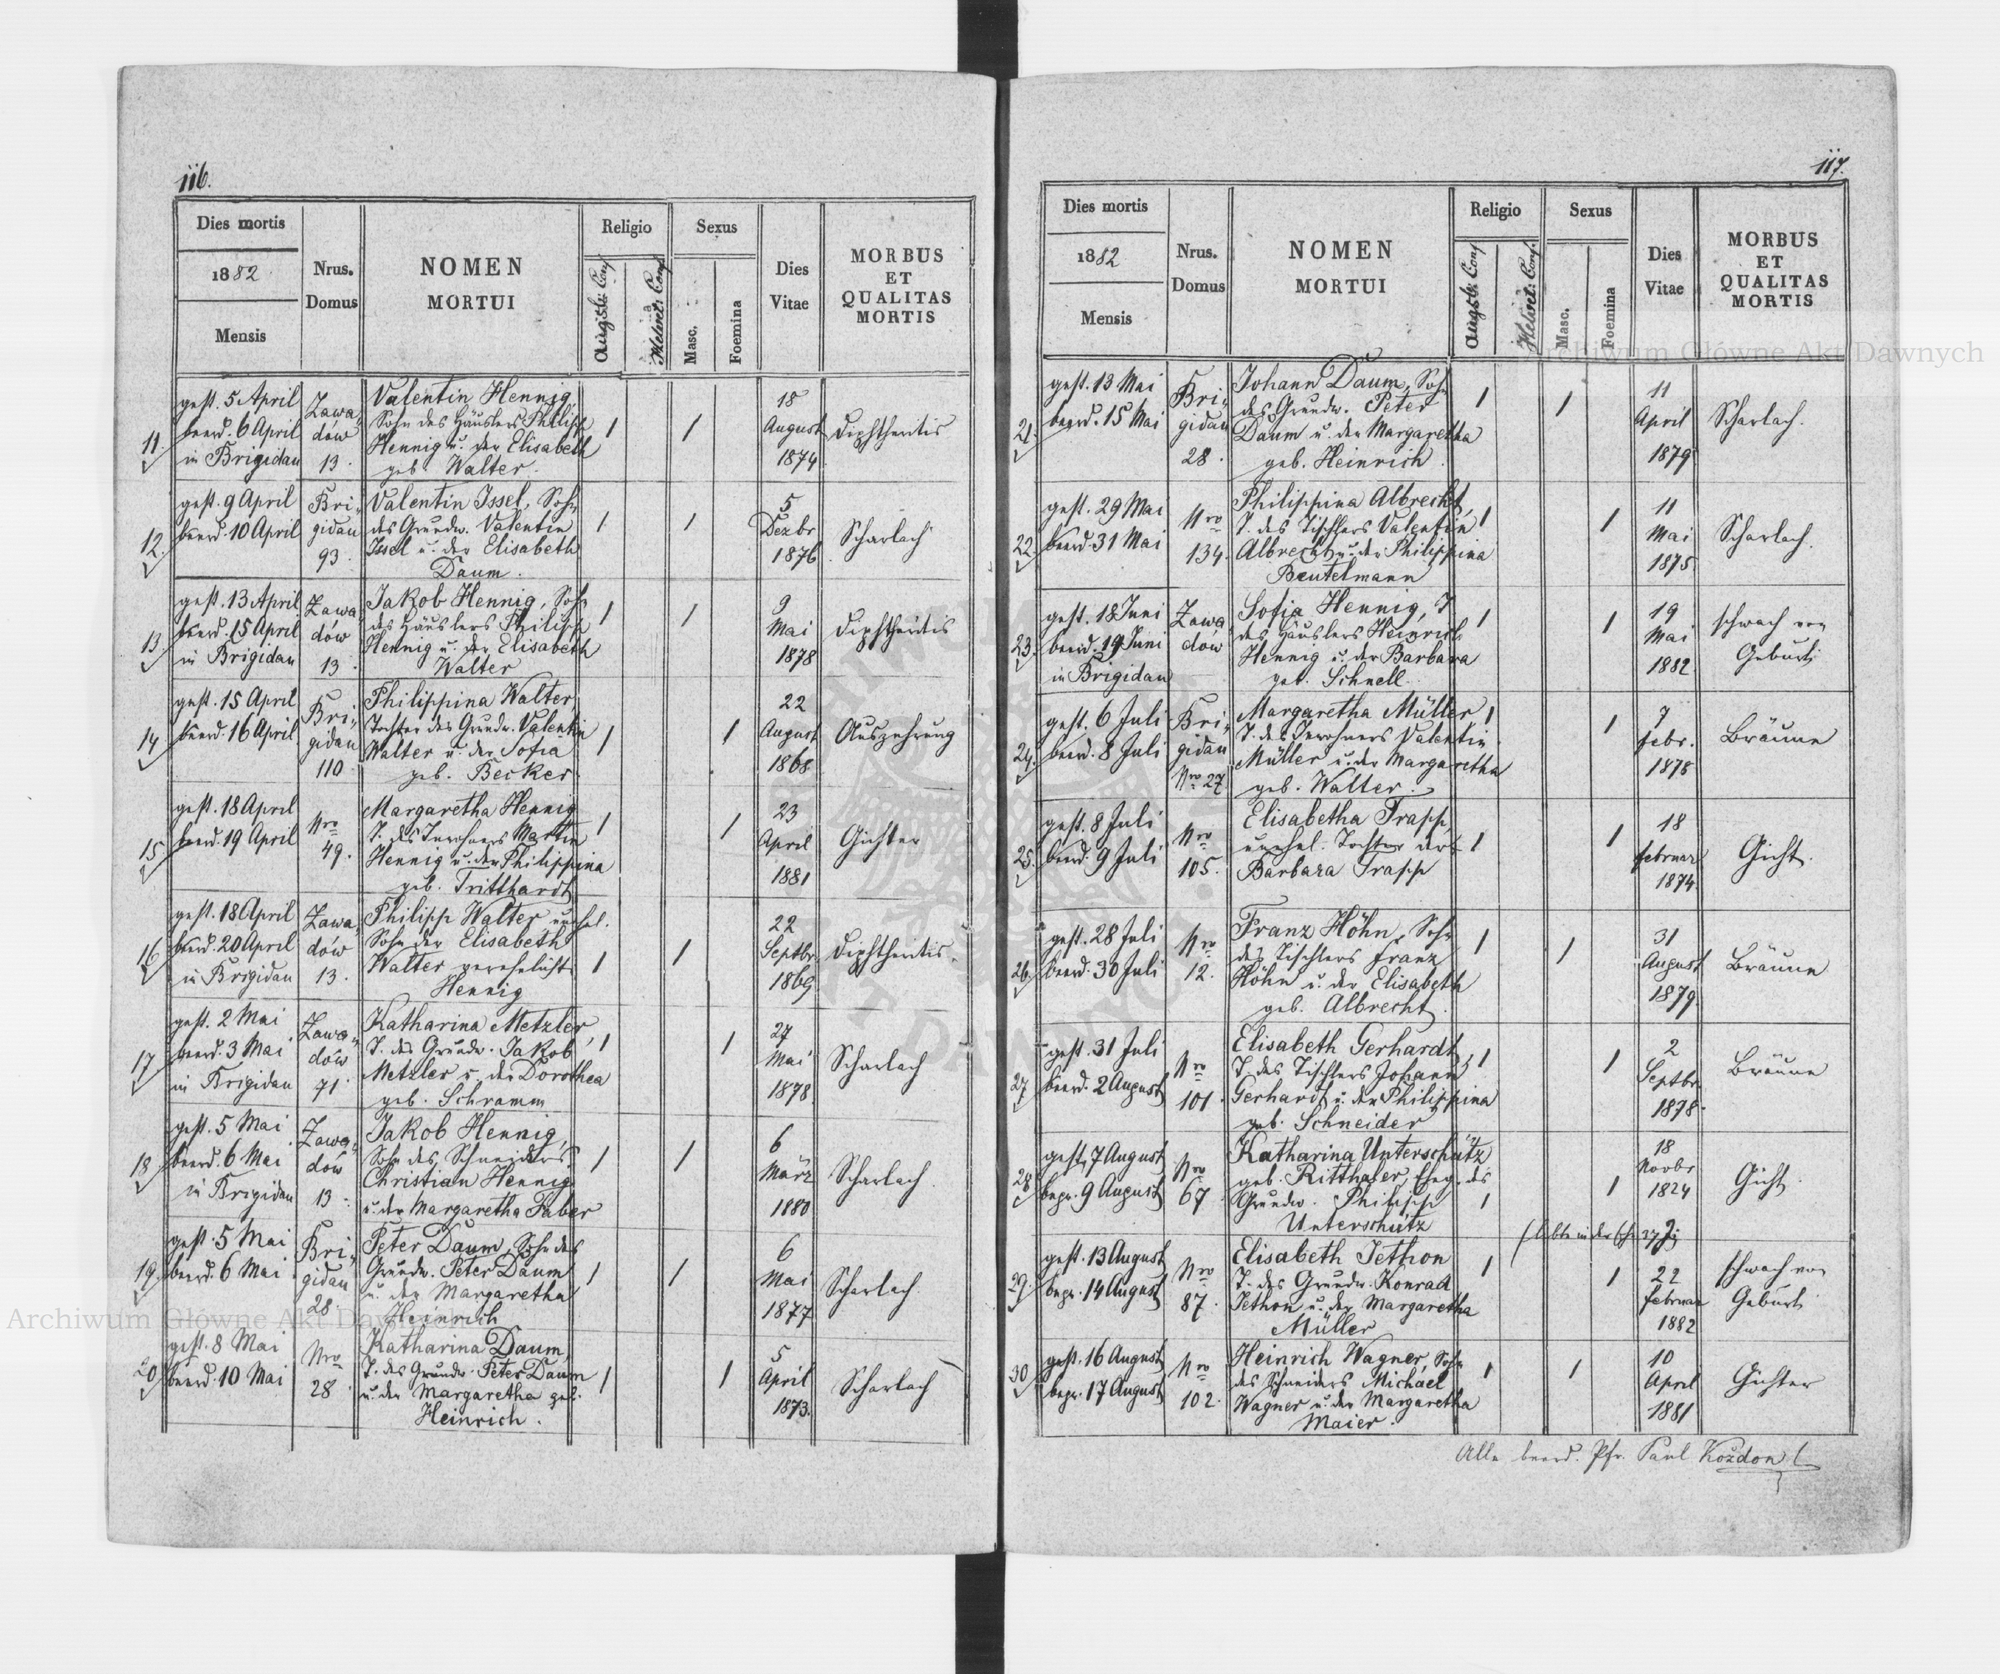 116.
Dies mortis
1882
Mensis
Nrus.
Domus
NOMEN
MORTUI
Religio
Augsb. Conf.
Helvet. Conf.
Sexus
Masc.
Foemina
Dies
Vitae
MORBUS
ET
QUALITAS
MORTIS
11.
gest. 5 April
beerd. 6 April
in Brigidau
Zawa„
dów
13.
Valentin Hennig,
Sohn des Häuslers Philipp
Hennig u. der Elisabeth
geb. Walter.
18
August
1874
Diphtheritis
12.
gest. 9 April
beerd. 10 April
Bri„
gidau
93.
Valentin Issel, Sohn
des Grundw. Valentin
Issel u. der Elisabeth
Daum.
5
Dezbr
1876
Scharlach
13.
gest. 13 April
beerd. 15 April
in Brigidau
Zawa„
dów
13.
Jakob Hennig, Sohn
des Häuslers Philipp
Hennig u. der Elisabeth
Walter
9
Mai
1878
Diphtheritis
14
gest. 15 April
beerd. 16 April
Bri„
gidau
110
Philippina Walter,
Tochter des Grundw. Valentin
Walter u. der Sofia
geb. Becker
22
August
1868
Auszehrung
15
gest. 18 April
beerd. 19 April
Nro
49.
Margaretha Hennig
T. des Inwohners Martin
Hennig u. der Philippina
geb. Tritthardt
23
April
1881
Gichter
16
gest. 18 April
beerd. 20 April
in Brigidau
Zawa„
dów
13.
Philipp Walter unehel.
Sohn der Elisabeth
Walter verehelicht
Hennig
22
Septbr.
1869
Diphtheritis.
17
gest. 2 Mai
beerd. 3 Mai
in Brigidau
Zawa„
dów
71.
Katharina Metzler,
T. des Grundw. Jakob
Metzler u. der Dorothea
geb. Schramm
27
Mai
1878
Scharlach
18
gest. 5 Mai
beerd. 6 Mai
in Brigidau
Zawa„
dów
13.
Jakob Hennig,
Sohn des Schneiders
Christian Hennig
u. der Margaretha Faber
6
März
1880
Scharlach.
19.
gest. 5 Mai
beerd. 6 Mai
Bri„
gidau
28.
Peter Daum, Sohn des
Grundw. Peter Daum
u. der Margaretha
Heinrich
6
Mai
1877
Scharlach
20
gest. 8 Mai
beerd. 10 Mai
Nro
28.
Katharina Daum,
T. des Grundw. Peter Daum
u. der Margaretha geb.
Heinrich.
5
April
1873.
Scharlach
117.
Dies mortis
1882
Mensis
Nrus.
Domus
NOMEN
MORTUI
Religio
Augsb. Conf.
Helvet. Conf.
Sexus
Masc.
Foemina
Dies
Vitae
MORBUS
ET
QUALITAS
MORTIS
21.
gest. 13 Mai
beerd. 15 Mai
Bri„
gidau
28.
Johann Daum, Sohn
des Grundw. Peter
Daum u. der Margaretha
geb. Heinrich.
11
April
1879
Scharlach.
22
gest. 29 Mai
beerd. 31 Mai
Nro
134.
Philippina Albrecht,
T. des Tischlers Valentin
Albrecht u. der Philippina
Beutelmann
11
Mai
1875
Scharlach.
23.
gest. 18 Juni
beerd. 19 Juni
in Brigidau
Zawa
dów
Sofia Hennig, T.
des Häuslers Heinrich
Hennig u. der Barbara
geb. Schnell
19
Mai
1882
schwach von
Geburt
24.
gest. 6 Juli
beerd. 8 Juli
Bri„
gidau
Nro 27
Margaretha Müller
T. des Inwohners Valentin
Müller u. der Margaretha
geb. Walter.
7
Febr.
1878
Bräune
25.
gest. 8 Juli
beerd. 9 Juli
Nro
105.
Elisabetha Trapp,
unehel. Tochter der
Barbara Trapp
18
Februar
1874
Gicht.
26.
gest. 28 Juli
beerd. 30 Juli
Nro
12.
Franz Höhn, Sohn
des Tischlers Franz
Höhn u. der Elisabeth
geb. Albrecht.
31
August
1879.
Bräune
27
gest. 31 Juli
beerd. 2 August
Nro
101.
Elisabeth Gerhardt,
T. des Tischlers Johann
Gerhardt u. der Philippina
geb. Schneider
2
Septbr.
1878.
Bräune
28
gest. 7 August
begr. 9 August
Nro
67.
Katharina Unterschütz
geb. Ritthaler, Eheg. des
Grundw. Philipp
Unterschütz
18
Novbr
1824
(lebte in der Ehe 37 J.)
Gicht.
29.
gest. 13 August
begr. 14 August
Nro
87.
Elisabeth Jethon
T. des Grundw. Konrad
Jethon u. der Margaretha
Müller
22
Februar
1882
schwach von
Geburt
30
gest. 16 August
begr. 17 August
Nro
102.
Heinrich Wagner, Sohn
des Schneiders Michael
Wagner u. der Margaretha
Maier.
10
April
1881
Gichter
Alle beerd. Pfr. Paul Kożdon
Archiwum Główne Akt Dawnych
Archiwum Główne Akt Dawnych